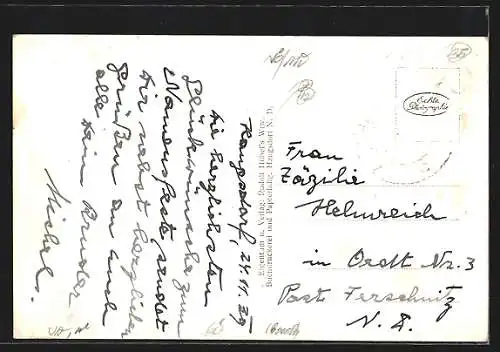 Haugsdorf, 24.11.39
Die herzlichsten
Glückwünsche zum
Namensfeste, sendet
Dir nebst herzlichen
Grüßen an Euch
alle Dein Bruder
Michel.
Eigentum u. Verlag: Rudolf Huber's Wwe.,
Buchdruckerei und Papierhdlg. Haugsdorf N. D.
Echte
Photographie
Frau
Zäzilie
Helmreich
in Ordt Nr. 3
Post Ferschnitz
N. D.